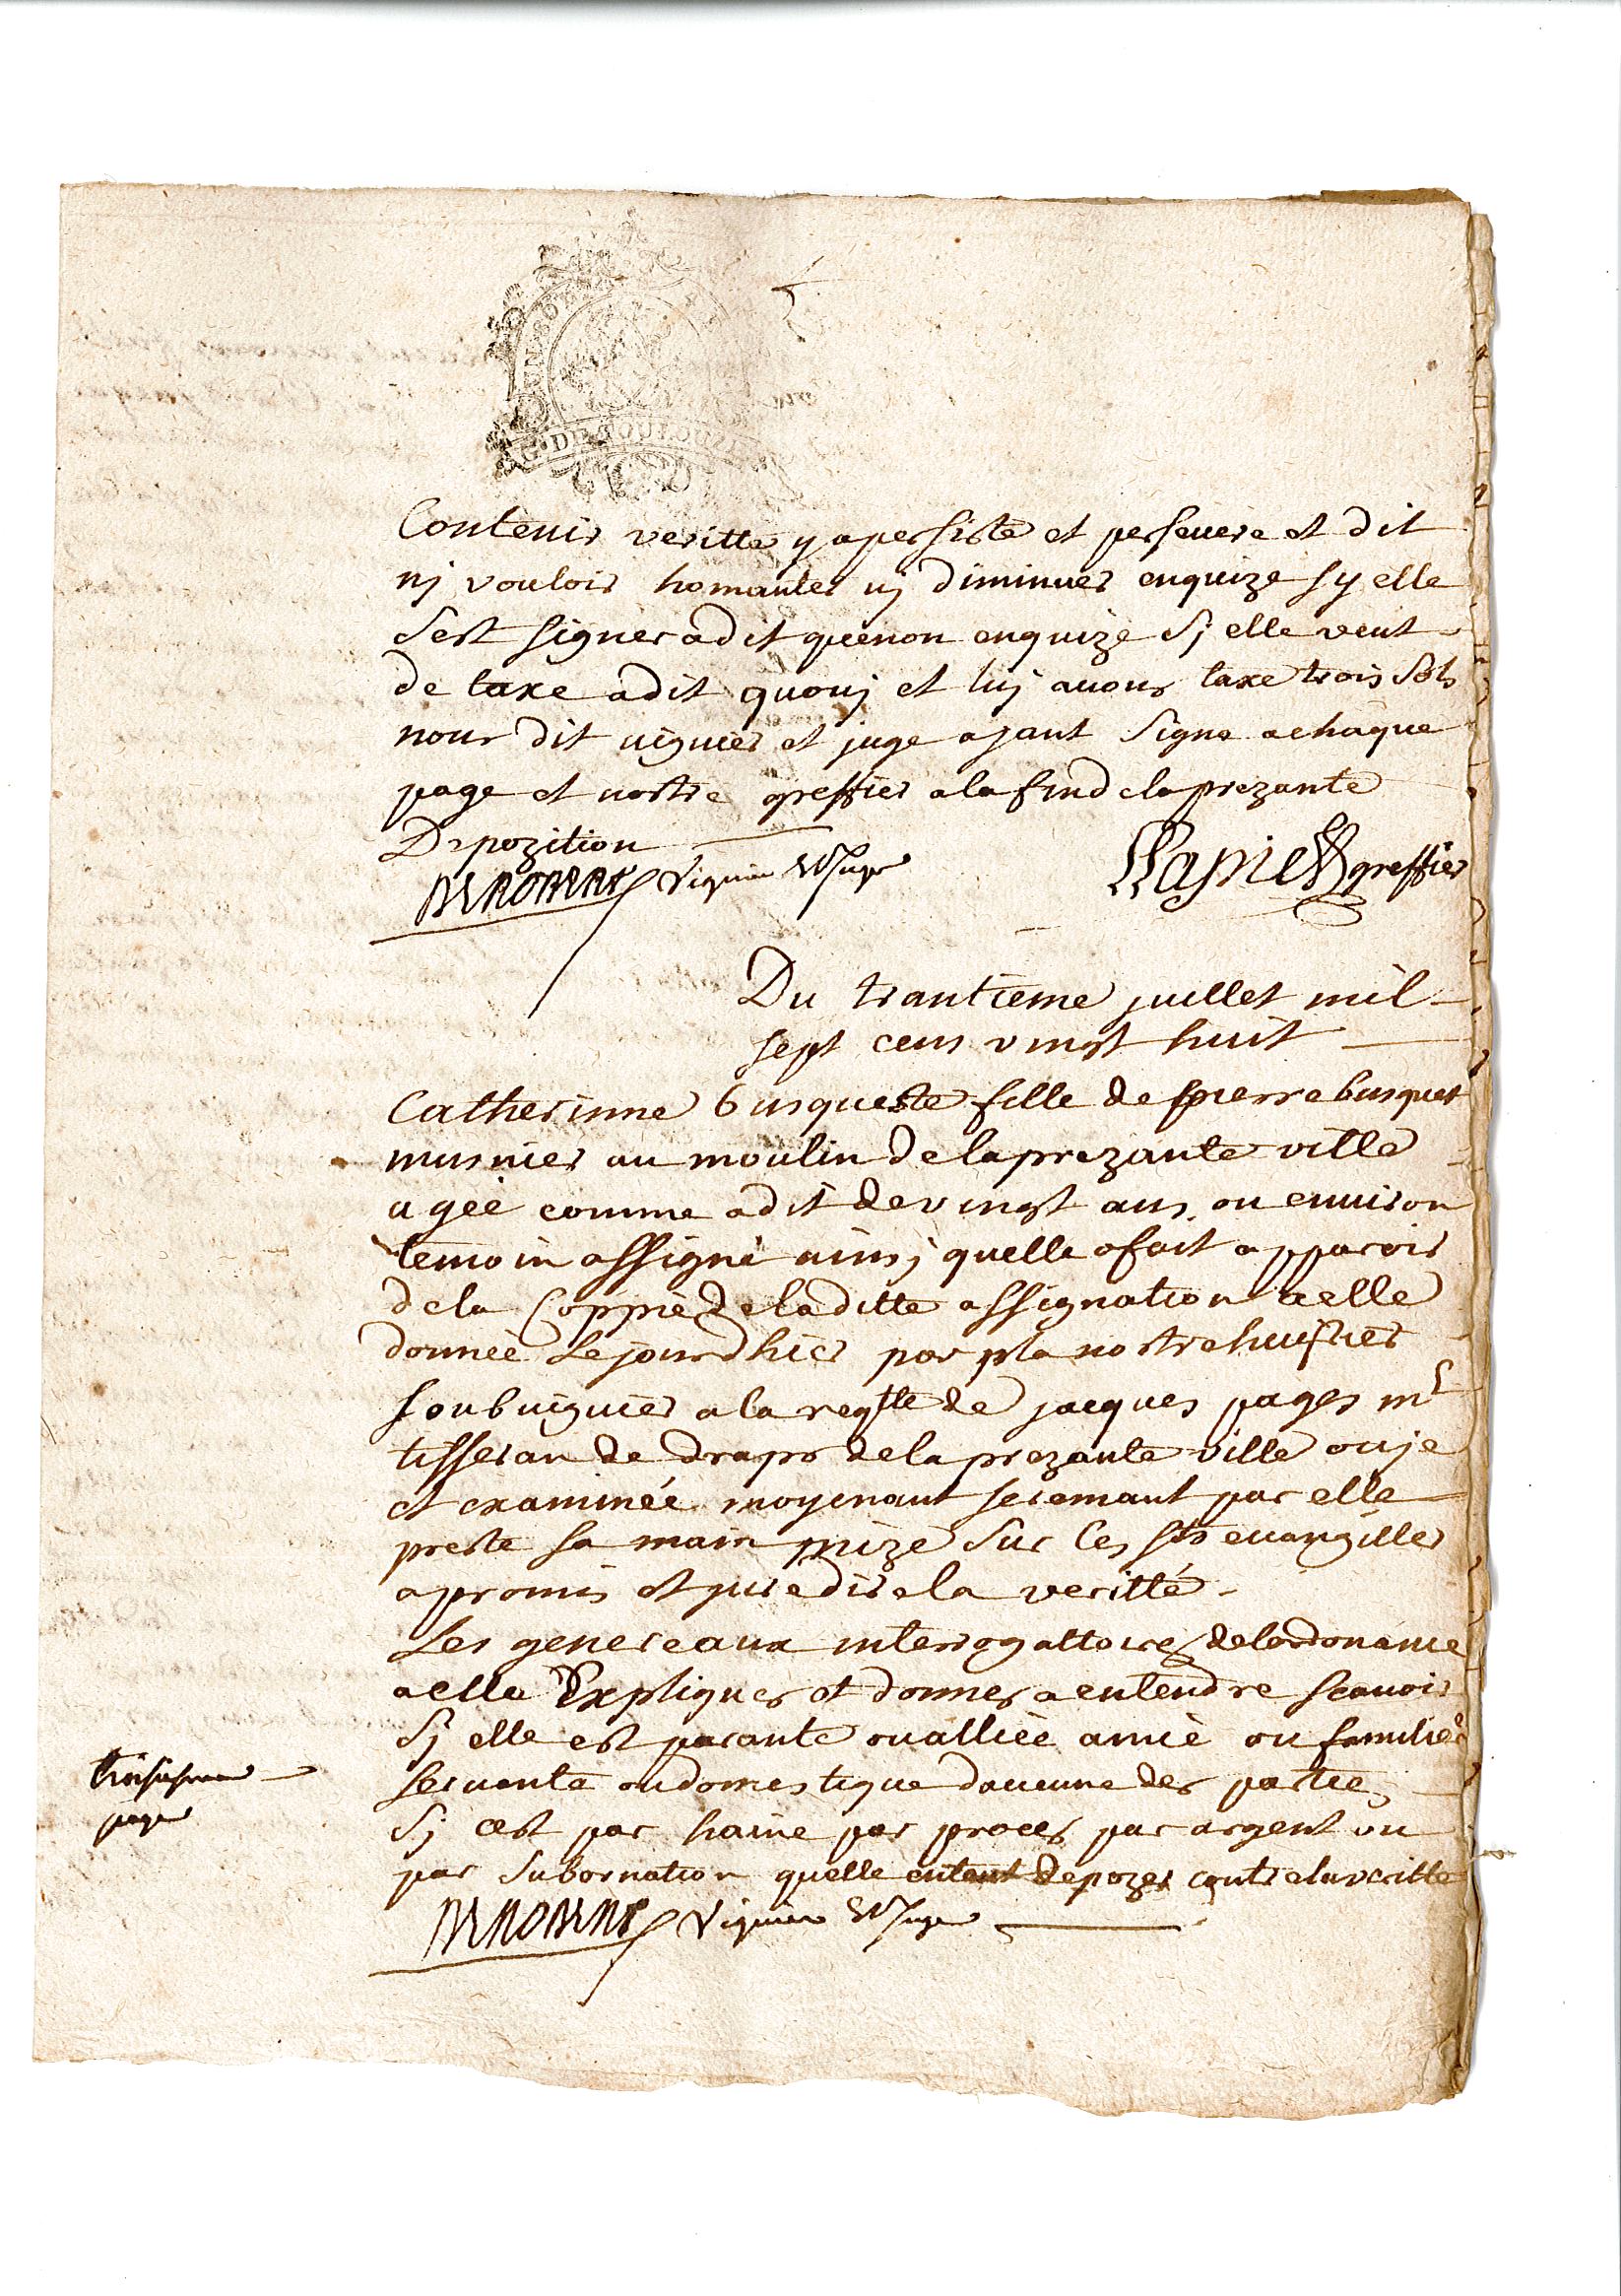 G. DE TOULOUSE
Contenir veritte y a persiste et perseuere et dit
nj vouloir homanter nj diminuer enquize sy elle
sest signer a dit que non enquize sj elle veut
de taxe a dit quouj et luj auons taxe trois sols
nous dit uiguier et juge ajant signe a chaque
page et nostre greffier a la find de la prezante
Depozition
Viguier et Juge greffier
Du trantieme juillet mil
sept cens vingt huit
Catherinne busquete fille de pierre busquet
musnier au moulin de la prezante ville
agée comme a dit de vingt ans ou enuiron
temoin assigné ainsj quelle a fait apparoir
de la Coppie de la ditte assignation a elle
donnée le jour dhier par pla nostre huissier
soubuiguier a la reqte de jacques pages mr
tisseran de draps de la prezante ville ouje
et examinée moyenant seremant par elle
preste sa main mize sur les sts euangilles
a promis et jure dire la veritté
Les genereaux interrogattoires de lordonance
a elle Expliquer et donner a entendre scauoir
Sj elle est parante ou alliée amie ou familiere
seruante ou domestique daucune des parties
Sj cest par haine par proces par argent ou
par subornation quelle entent depozer contre la veritte
troisiesme
page
Viguier et Juge